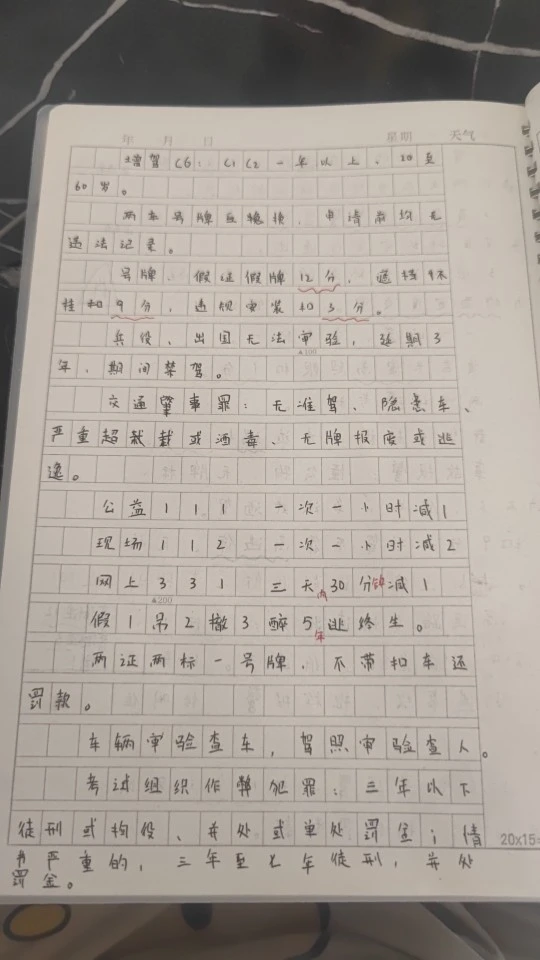 年 月 日 星期 天气
增驾C6：C1 C2一年以上，20至
60岁。
两车号牌互换，申请前均无
违法记录。
号牌、假证假牌12分，遮挡
挂扣9分，违规安装扣3分。
兵役、出国无法审验，延期3
年，期间禁驾。
▲100
交通肇事罪：无准驾、隐患车、
严重超载或酒毒、无牌报废或逃
逸。
公益111 一次一小时减1
现场112 一次一小时减2
网上331 三天内30分钟减1
▲200
假1吊2撤3醉5年逃终生。
两证两标一号牌，不带扣车还
罚款。
车辆审验查车，驾照审验查人。
考试组织作弊犯罪：三年以下
徒刑或拘役、并处或单处罚金；情
20x15=
节严重的，三年至七年徒刑，并处
罚金。